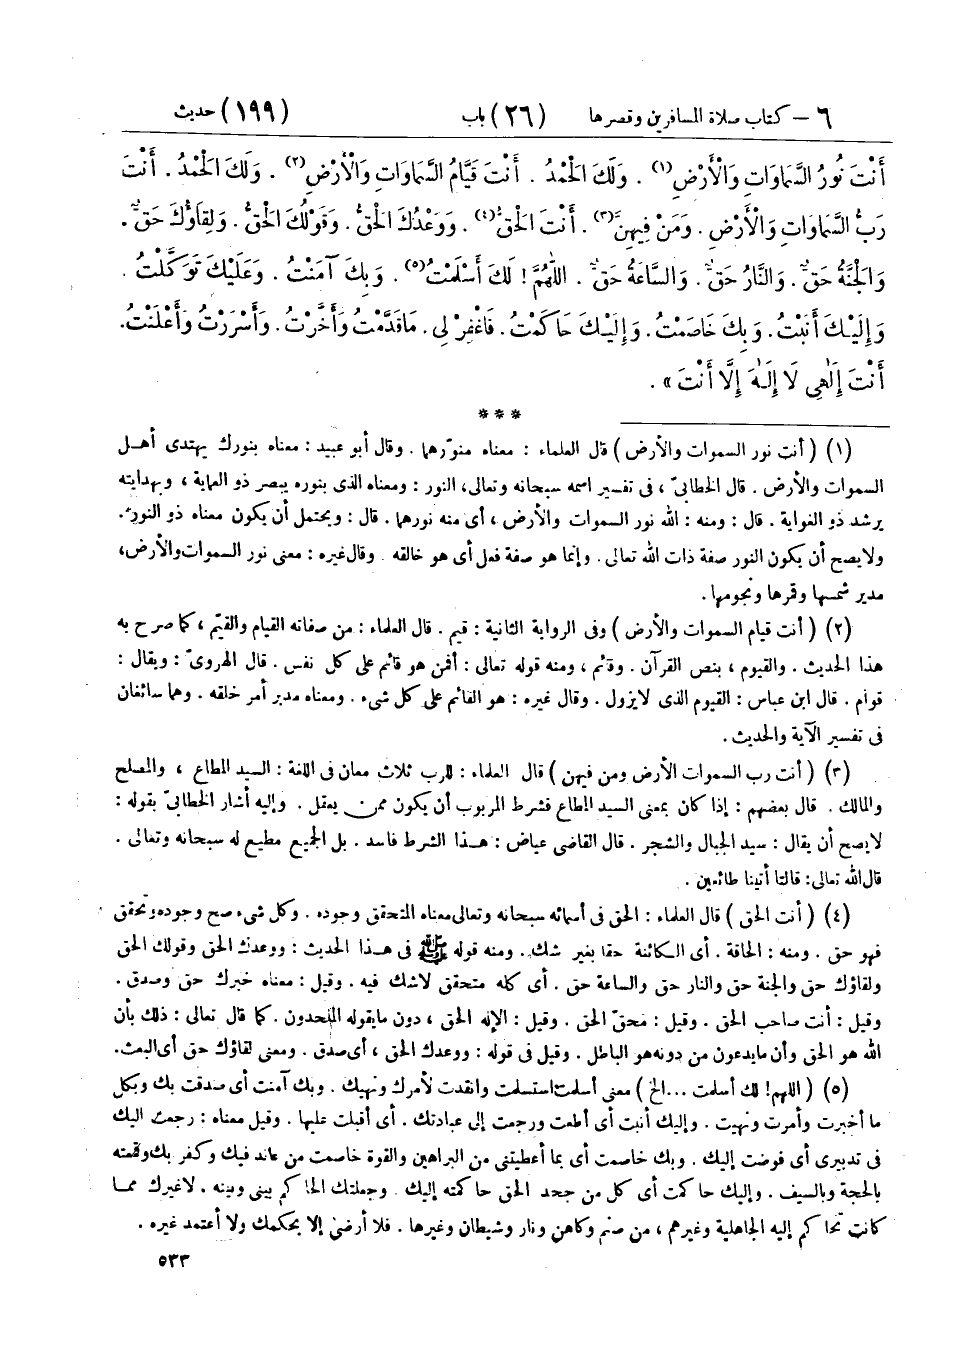 ٦ – كتاب صلاة المسافرين وقصرها (٢٦) باب (١٩٩) حديث
أَنْتَ نُورُ السَّمَاوَاتِ وَالْأَرْضِ(١) . وَلَكَ الْحَمْدُ . أَنْتَ قَيَّامُ السَّمَاوَاتِ وَالْأَرْضِ(٢) . وَلَكَ الْحَمْدُ . أَنْتَ
رَبُّ السَّمَاوَاتِ وَالْأَرْضِ . وَمَنْ فِيهِنَّ(٣) . أَنْتَ الْحَقُّ(٤) . وَوَعْدُكَ الْحَقُّ . وَقَوْلُكَ الْحَقُّ . وَلِقَاؤُكَ حَقٌّ .
وَالْجَنَّةُ حَقٌّ . وَالنَّارُ حَقٌّ . وَالسَّاعَةُ حَقٌّ . اللَّهُمَّ ! لَكَ أَسْلَمْتُ(٥) . وَبِكَ آمَنْتُ . وَعَلَيْكَ تَوَكَّلْتُ .
وَإِلَيْكَ أَنَبْتُ . وَبِكَ خَاصَمْتُ . وَإِلَيْكَ حَاكَمْتُ . فَاغْفِرْ لِي . مَا قَدَّمْتُ وَأَخَّرْتُ . وَأَسْرَرْتُ وَأَعْلَنْتُ .
أَنْتَ إِلَٰهِي لَا إِلَٰهَ إِلَّا أَنْتَ » .
***
(١) ( أنت نور السموات والأرض ) قال العلماء : معناه منوّرهما . وقال أبو عبيد : معناه بنورك يهتدى أهل
السموات والأرض . قال الخطابىّ ، فى تفسير اسمه سبحانه وتعالى، النور : ومعناه الذى بنوره يبصر ذو العماية ، وبهدايته
يرشد ذو الغواية . قال : ومنه : الله نور السموات والأرض ، أى منه نورهما . قال : ويحتمل أن يكون معناه ذو النور .
ولايصح أن يكون النور صفة ذات الله تعالى . وإنما هو صفة فعل أى هو خالقه . وقال غيره : معنى نور السموات والأرض،
مدبر شمسها وقمرها ونجومها .
(٢) ( أنت قيام السموات والأرض ) وفى الرواية الثانية : قيم . قال العلماء : من صفاته القيام والقيّم ، كما صرح به
هذا الحديث . والقيوم ، بنص القرآن . وقائم ، ومنه قوله تعالى : أفمن هو قائم على كل نفس . قال الهروىّ : ويقال :
قوام . قال ابن عباس : القيوم الذى لايزول . وقال غيره : هو القائم على كل شىء . ومعناه مدبر أمر خلقه . وهما سائغان
فى تفسير الآية والحديث .
(٣) ( أنت رب السموات الأرض ومن فيهن ) قال العلماء : للرب ثلاث معان فى اللغة : السيد المطاع ، والمصلح
والمالك . قال بعضهم : إذا كان بمعنى السيد المطاع فشرط المربوب أن يكون ممن يعقل . وإليه أشار الخطابىّ بقوله :
لايصح أن يقال : سيد الجبال والشجر . قال القاضى عياض : هذا الشرط فاسد . بل الجميع مطيع له سبحانه وتعالى .
قال الله تعالى : قالتا أتينا طائعين .
(٤) ( أنت الحق ) قال العلماء : الحق فى أسمائه سبحانه وتعالى معناه المتحقق وجوده . وكل شىء صح وجوده وتحقق
فهو حق . ومنه : الحاقة . أى الكائنة حقا بغير شك . ومنه قوله ﷺ فى هذا الحديث : ووعدك الحق وقولك الحق
ولقاؤك حق والجنة حق والنار حق والساعة حق . أى كله متحقق لاشك فيه . وقيل : معناه خبرك حق وصدق .
وقيل : أنت صاحب الحق . وقيل : محقّ الحق . وقيل : الإله الحق ، دون مايقوله الملحدون . كما قال تعالى : ذلك بأن
الله هو الحق وأن مايدعون من دونه هو الباطل . وقيل فى قوله : ووعدك الحق ، أى صدق . ومعنى لقاؤك حق أى البعث.
(٥) ( اللهم! لك أسلمت ...الخ ) معنى أسلمت استسلمت وانقدت لأمرك ونهيك . وبك آمنت أى صدقت بك وبكل
ما أخبرت وأمرت ونهيت . وإليك أنبت أى أطعت ورجعت إلى عبادتك . أى أقبلت عليها . وقيل معناه : رجعت اليك
فى تدبيرى أى فوضت إليك . وبك خاصمت أى بما أعطيتنى من البراهين والقوة خاصمت من عاند فيك وكفر بك وقمعته
بالحجة وبالسيف . وإليك حاكمت أى كل من جحد الحق حاكمته إليك . وجعلتك الحاكم بينى وبينه . لاغيرك مما
كانت تحاكم إليه الجاهلية وغيرهم ، من صنم وكاهن ونار وشيطان وغيرها . فلا أرضى إلا بحكمك ولا أعتمد غيره .
٥٣٣